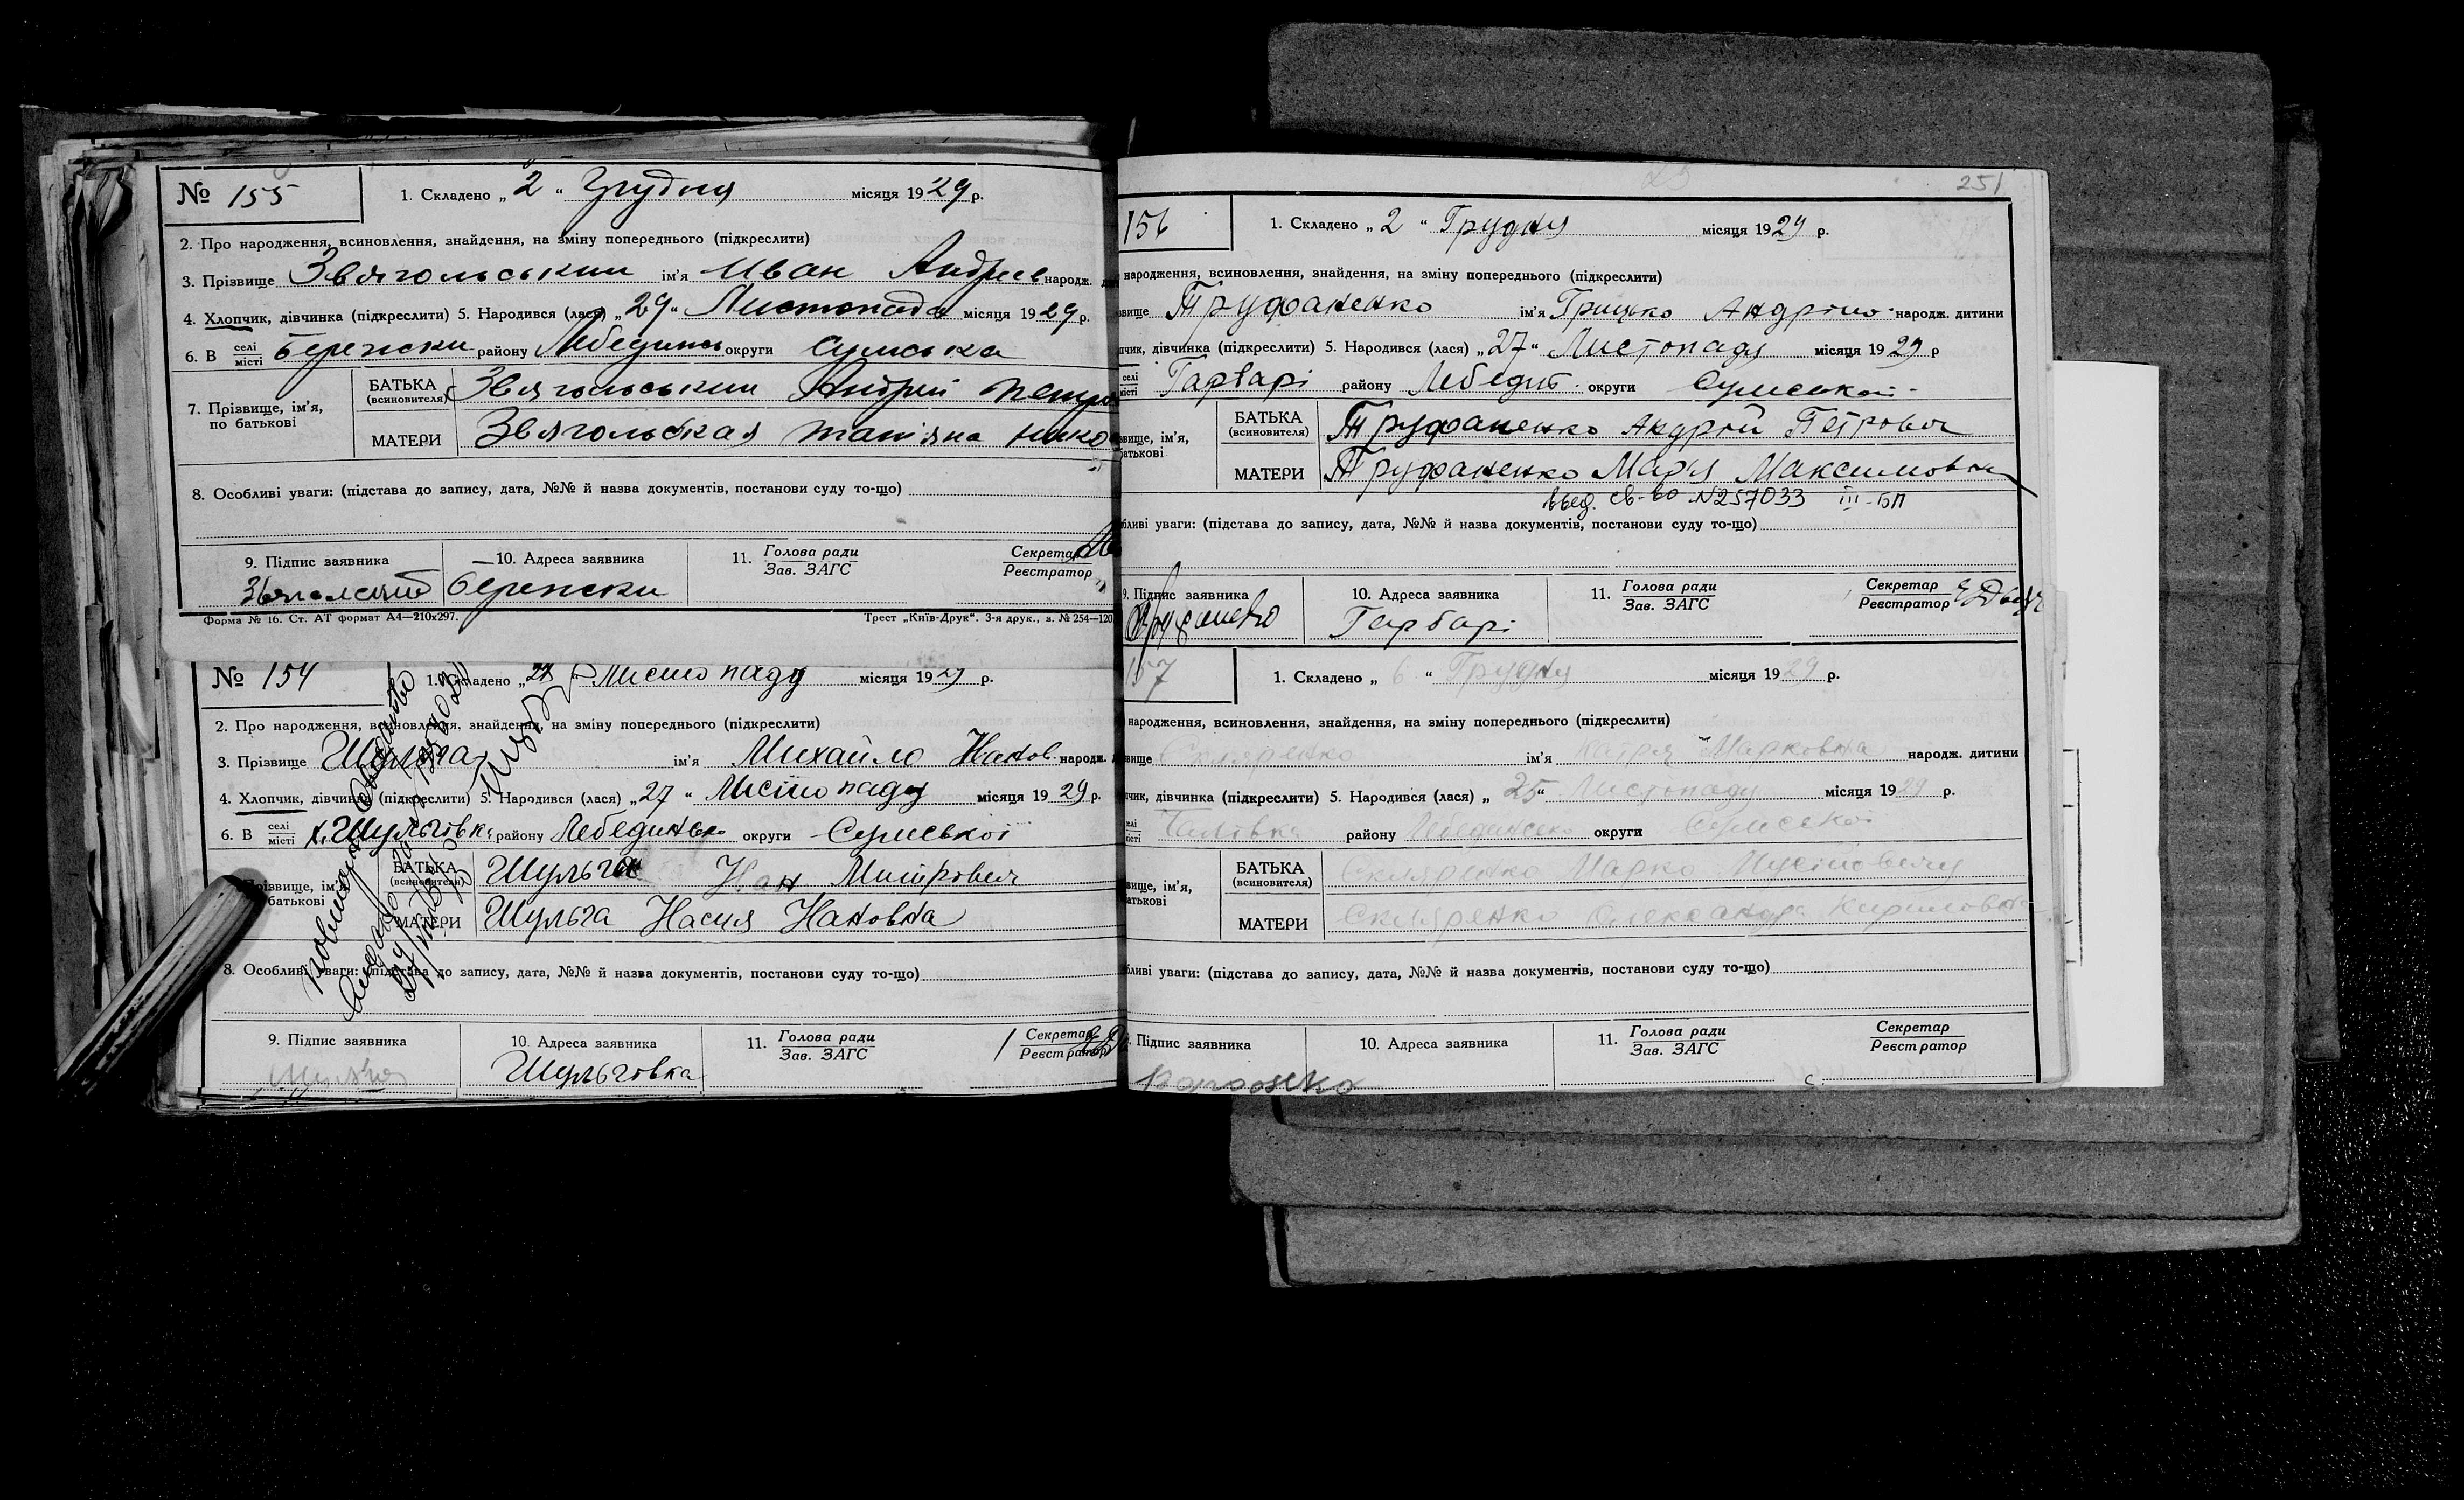 № 155
1. Складено „ 2 “ Грудня місяця 1929 р.
2. Про народження, всиновлення, знайдення, на зміну попереднього (підкреслити)
3. Прізвище Звягольський ім'я Иван Андреев народж.
4. Хлопчик, дівчинка (підкреслити) 5. Народився (лася) „29“ Листопада місяця 1929 р.
6. В селі місті Бережки району Лебединсь округи Сумська
7. Прізвище, ім'я, по батькові
БАТЬКА (всиновителя) Звягольський Андрий Петро
МАТЕРИ Звягольская Татіяна Нико
8. Особливі уваги: (підстава до запису, дата, №№ й назва документів, постанови суду то-що)
9. Підпис заявника
10. Адреса заявника Бережки
11. Голова ради Зав. ЗАГС
Секретар Реєстратор
Форма № 16. Ст. АТ формат А4—210х297.
Трест „Київ-Друк“. 3-я друк., з. № 254—120
№ 154
1. Складено „27“ Листопаду місяця 1929 р.
2. Про народження, всиновлення, знайдення, на зміну попереднього (підкреслити)
3. Прізвище Шульга ім'я Михайло Иванов. народж.
4. Хлопчик, дівчинка (підкреслити) 5. Народився (лася) „27“ Листопаду місяця 1929 р.
6. В селі місті х. Шульговк. району Лебединсько округи Сумської
Прізвище, ім'я, батькові
БАТЬКА (всиновителя) Шульга Иван Митрович
МАТЕРИ Шульга Настя Ивановна
8. Особливі уваги: (підстава до запису, дата, №№ й назва документів, постанови суду то-що)
9. Підпис заявника Шульга
10. Адреса заявника Шульговка
11. Голова ради Зав. ЗАГС
Секретар Реєстратор
251
156
1. Складено „ 2 “ Грудня місяця 1929 р.
народження, всиновлення, знайдення, на зміну попереднього (підкреслити)
звище Труфаненко ім'я Грицько Андрієв народж. дитини
пчик, дівчинка (підкреслити) 5. Народився (лася) „27“ Листопаду місяця 1929 р
селі місті Гарбарі району Лебедин. округи Сумської
звище, ім'я, батькові
БАТЬКА (всиновителя) Труфаненко Андрій Петрович
МАТЕРИ Труфаненко Марія Максимовна
выд. св-во №257033 III-БП
бливі уваги: (підстава до запису, дата, №№ й назва документів, постанови суду то-що)
9. Підпис заявника Труфаненко
10. Адреса заявника Гарбарі
11. Голова ради Зав. ЗАГС
Секретар Реєстратор
157
1. Складено „ 6 “ Грудня місяця 1929 р.
народження, всиновлення, знайдення, на зміну попереднього (підкреслити)
звище Скляренко ім'я Катря Марковна народж. дитини
пчик, дівчинка (підкреслити) 5. Народився (лася) „ 25“ Листопаду місяця 1929 р.
селі місті району Лебединсько округи Сумської
звище, ім'я, батькові
БАТЬКА (всиновителя) Скляренко Марко
МАТЕРИ Скляренко Олександра Кириловна
бливі уваги: (підстава до запису, дата, №№ й назва документів, постанови суду то-що)
Підпис заявника
10. Адреса заявника
11. Голова ради Зав. ЗАГС
Секретар Реєстратор